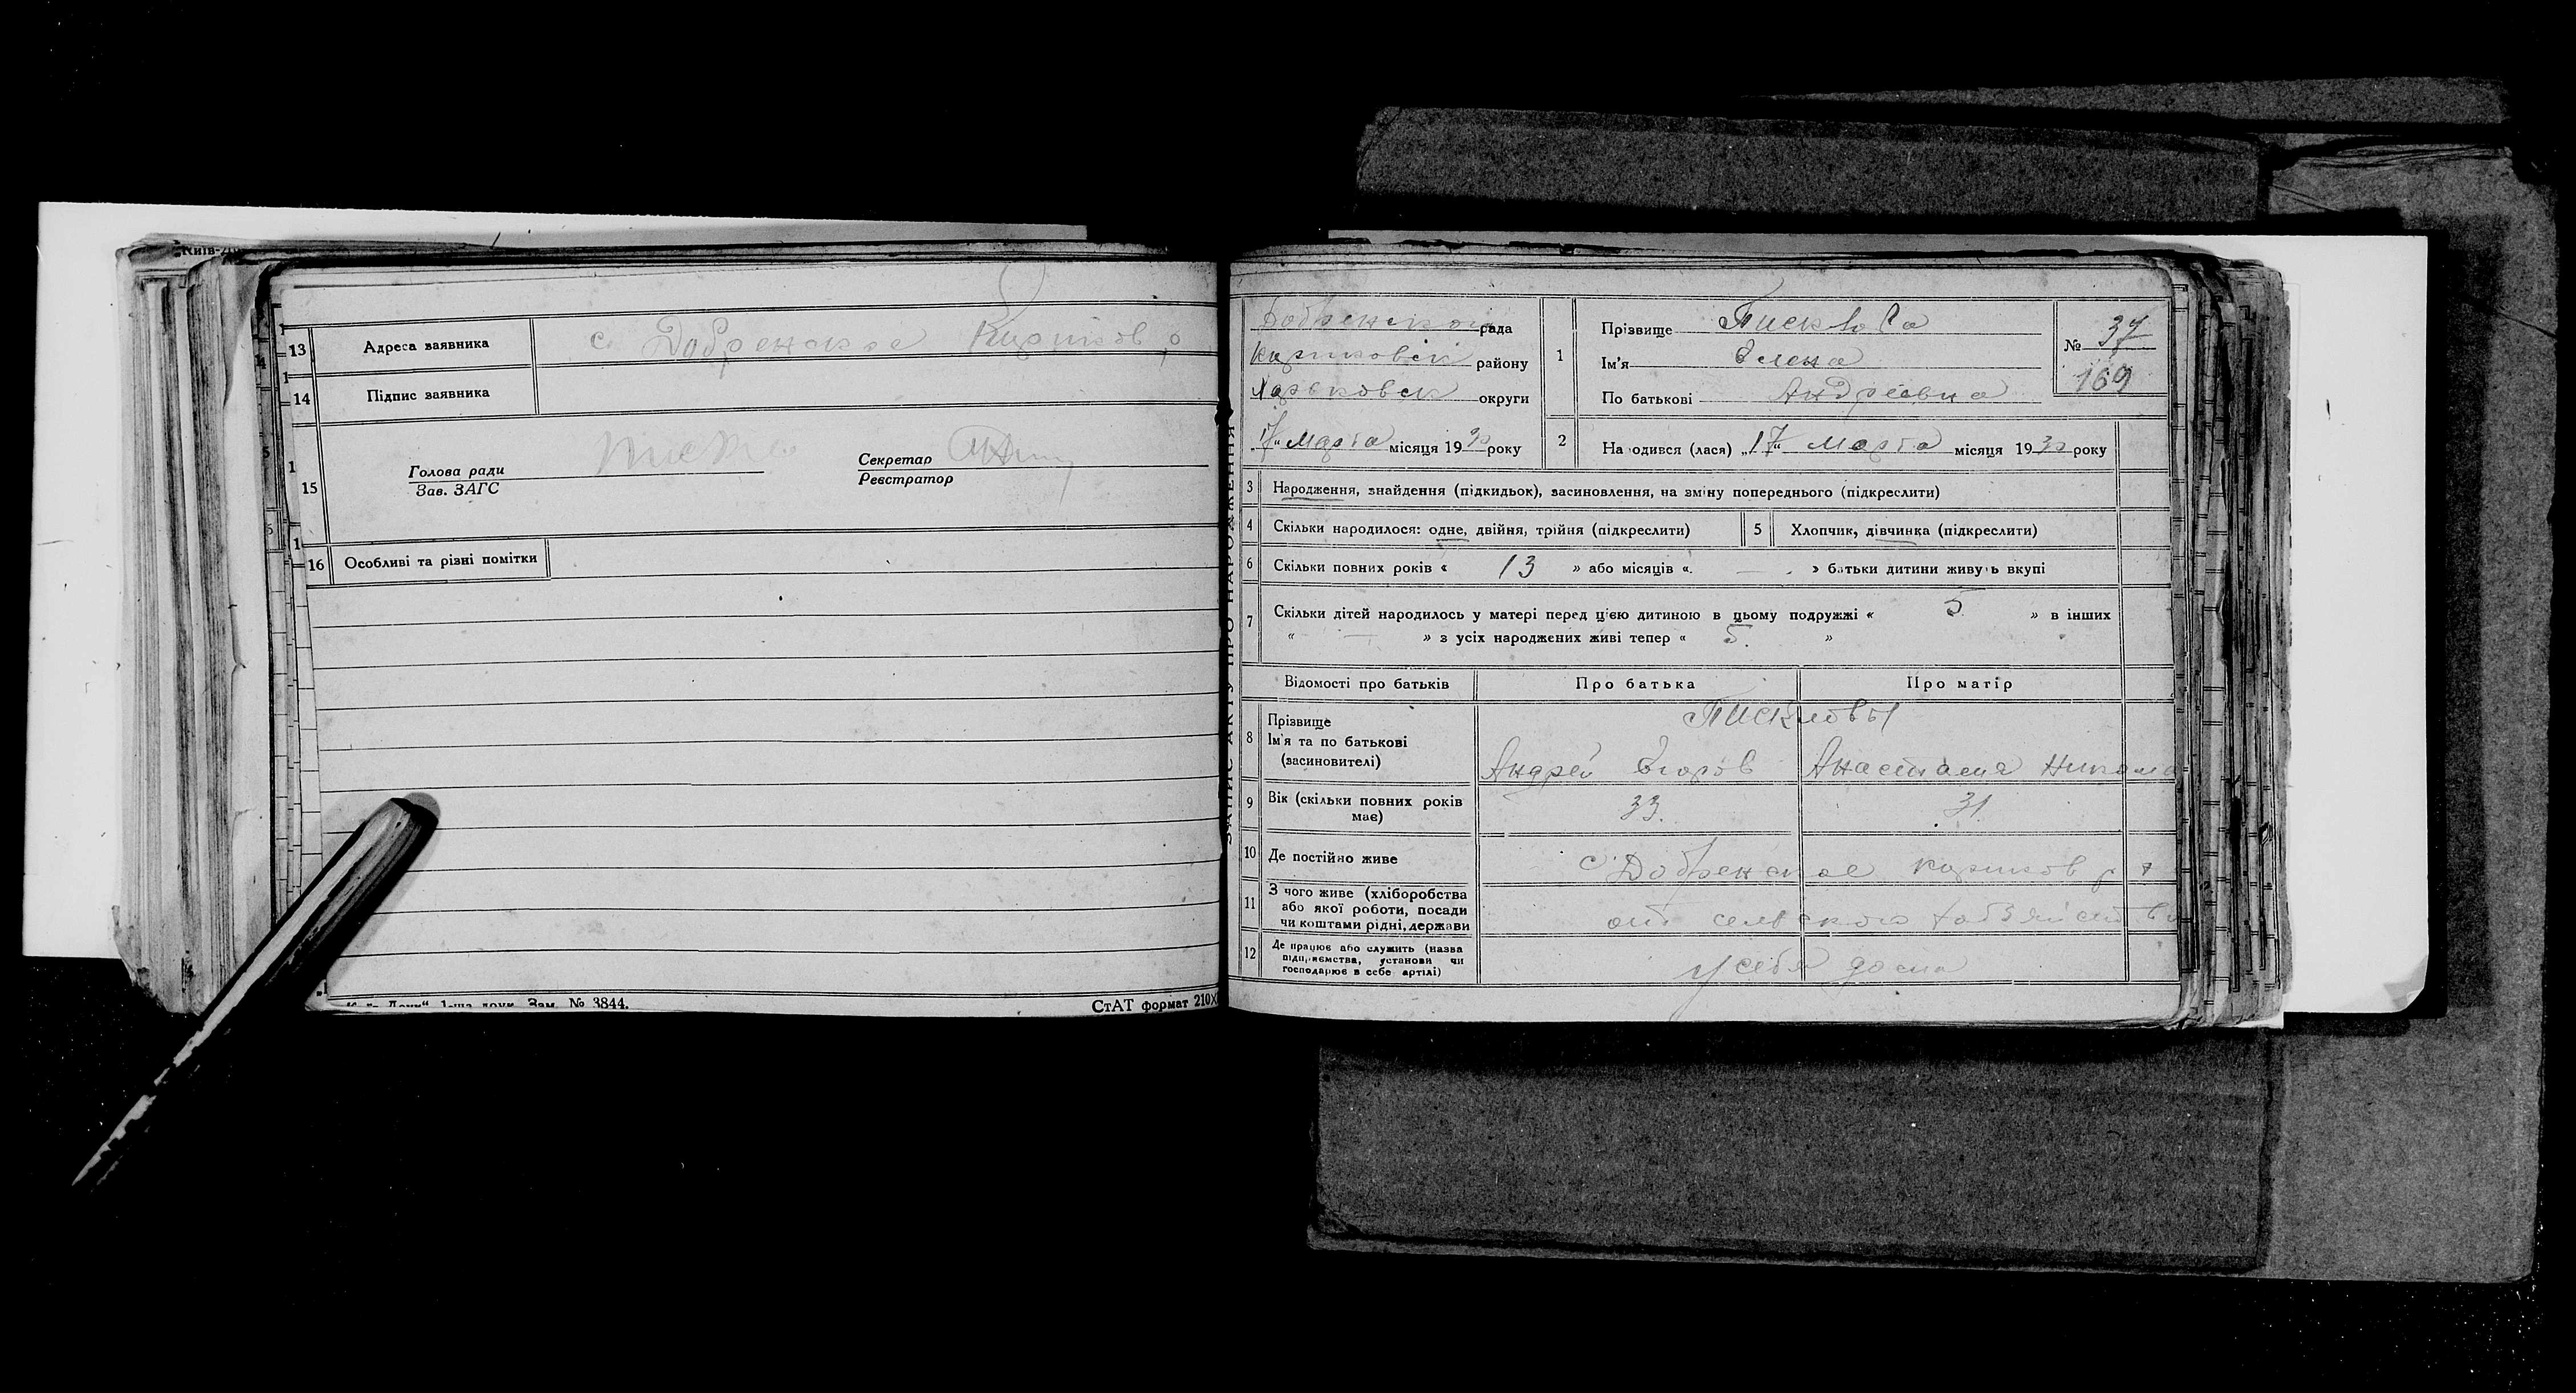 13 Адреса заявника с. Добренское
14 Підпис заявника
15
Голова ради
Зав. ЗАГС
Секретар
Реєстратор
16 Особливі та різні помітки
Зам. № 3844.
СтАТ формат 210×
ЗАПИС АКТУ ПРО НАРОДЖЕННЯ
Добренской рада
району
Харьковск округи
„17“ Марта місяця 1930 року
1 Прізвище
Ім'я Елена
По батькові Андреевна
№ 37
169
2 На одився (лася) „17“ Марта місяця 1930 року
3 Народження, знайдення (підкидьок), засиновлення, на зміну попереднього (підкреслити)
4 Скільки народилося: одне, двійня, трійня (підкреслити)
5 Хлопчик, дівчинка (підкреслити)
6 Скільки повних років « 13 » або місяців «. — . » батьки дитини живуть вкупі
7 Скільки дітей народилось у матері перед цією дитиною в цьому подружжі « 5 » в інших
« — » з усіх народжених живі тепер « 5. »
Відомості про батьків Про батька Про матір
8 Прізвище
Ім'я та по батькові
(засиновителі)
Пискловы
Андрей Егоров
Анастасия Никола
9 Вік (скільки повних років має) 33. 31.
10 Де постійно живе с. Добренское
11 З чого живе (хліборобства
або якої роботи, посади
чи коштами рідні, держави
от сельского хозяйства
12 Де працює або служить (назва
підприємства, установи чи
господарює в себе артілі)
у себя дома